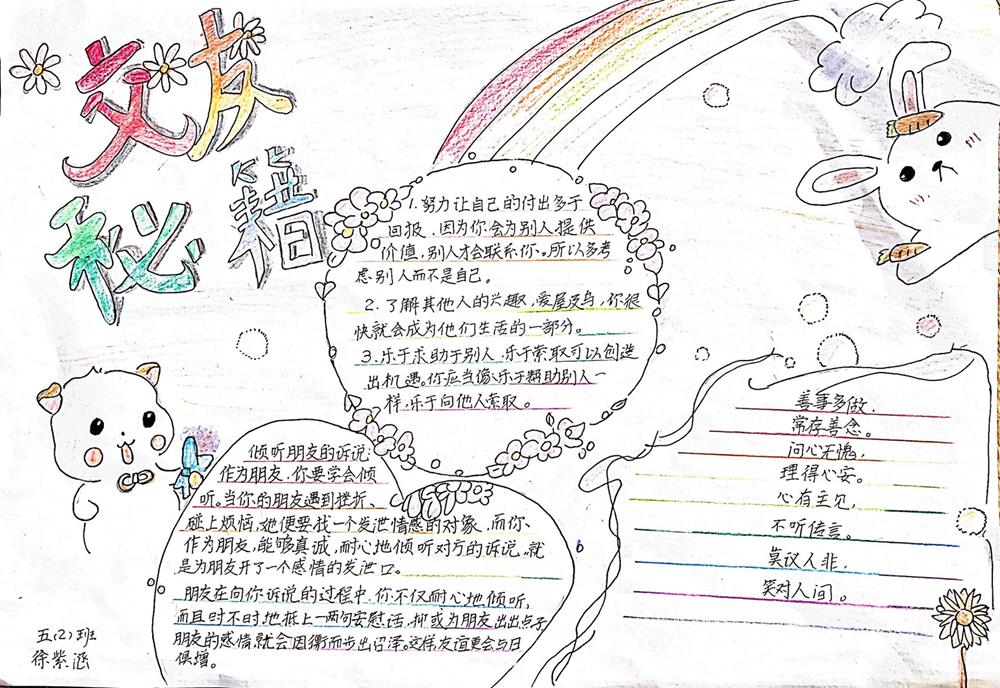 交友
秘籍
1.努力让自己的付出多于
回报，因为你会为别人提供
价值，别人才会联系你。所以多考
虑别人而不是自己。
2.了解其他人的兴趣，爱屋及乌，你很
快就会成为他们生活的一部分。
3.乐于求助于别人，乐于索取可以创造
出机遇。你应当像乐于帮助别人一
样，乐于向他人索取。
倾听朋友的诉说：
作为朋友，你要学会倾
听。当你的朋友遇到挫折、
碰上烦恼，她便要找一个发泄情感的对象，而你、
作为朋友，能够真诚，耐心地倾听对方的诉说，就
是为朋友开了一个感情的发泄口。
朋友在向你诉说的过程中，你不仅耐心地倾听，
而且时不时地抵上一两句安慰话，抑或为朋友出出点子
朋友的感情，就会因衝而步出沼泽。这样友谊更会与日
俱增。
善事多做，
常存善念。
问心无愧，
理得心安。
心有主见，
不听传言。
莫议人非，
笑对人间。
五(2)班
徐紫涵